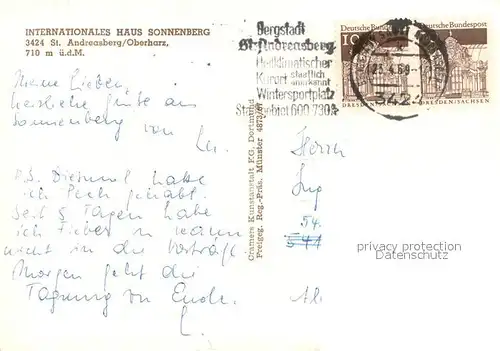 INTERNATIONALES HAUS SONNENBERG
3424 St. Andreasberg/Oberharz,
710 m ü.d.M.
Meine Lieben,
herzliche Grüße aus
Sonnenberg
von
L.
P.S. Diesmal hatte
ich Pech gehabt.
Seit 5 Tagen habe
ich Fieber u kann
nicht in die Vorträge
Morgen geht die
Tagung zu Ende.
L.
Cramers Kunstanstalt KG, Dortmund
Freigeg. Reg.-Präs. Münster
Bergstadt
St. Andreasberg
Heilklimatischer
Kurort staatlich anerkannt
Wintersportplatz
3424
Deutsche Bundespost
10
DRESDEN/SACHSEN
Deutsche Bundespost
DRESDEN/SACHSEN
Herrn
Ing
54.
privacy protection
for Collectors